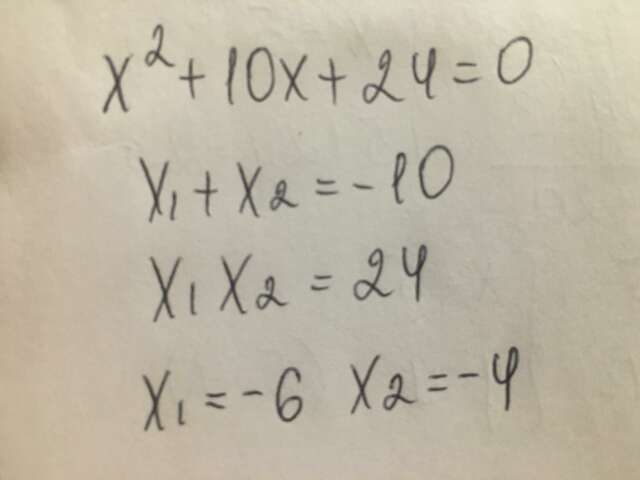 x²+10x+24=0
x₁+x₂=-10
x₁x₂=24
x₁=-6 x₂=-4